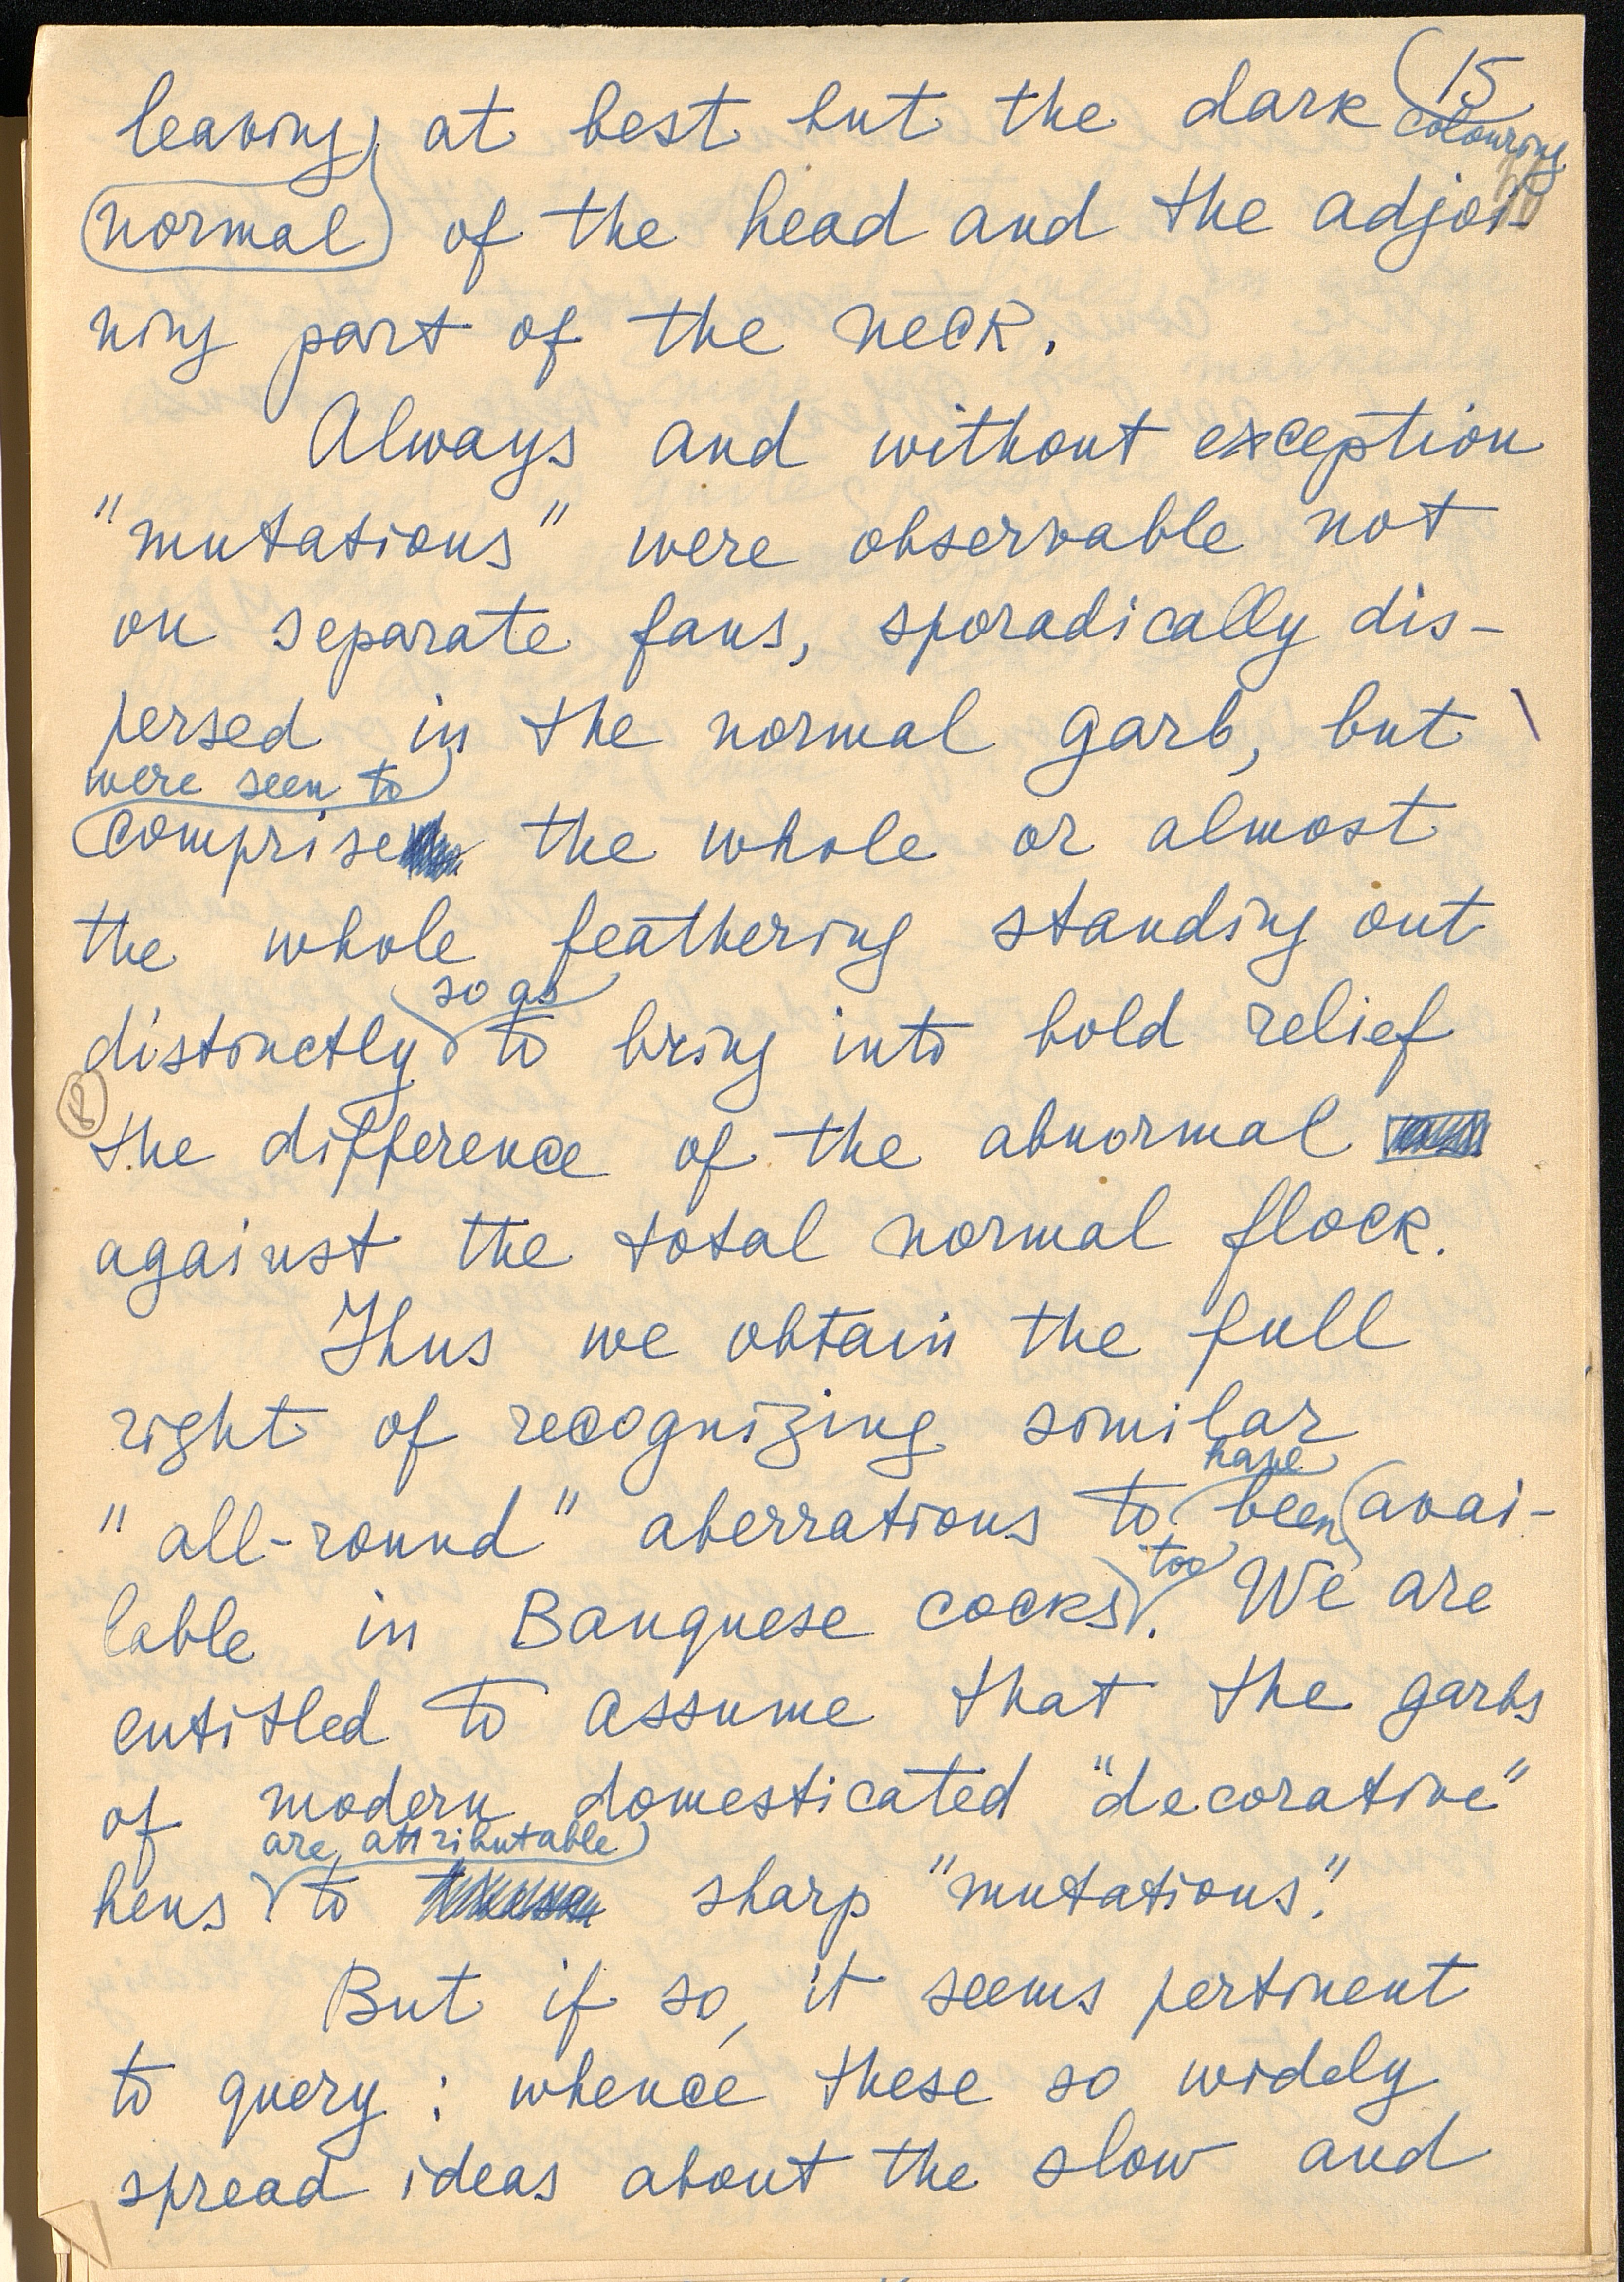 (15
leaving, at best but the dark colouring
normal of the head and the adjoi-
ning part of the neck.
Always and without exception
"mutations" were observable not
on separate fans, sporadically dis-
persed in the normal garb, but
were seen to
comprise the whole or almost
the whole feathering standing out
so as
distinctly to bring into bold relief
the difference of the abnormal
against the total normal flock.
Thus we obtain the full
right of recognizing similar
have
"all-round" aberrations to been avai-
too
lable in Banquese cocks. We are
entitled to assume that the garbs
of modern domesticated "decorative"
are attributable
hens to sharp "mutations".
But if so, it seems pertinent
to query: whence these so widely
spread ideas about the slow and